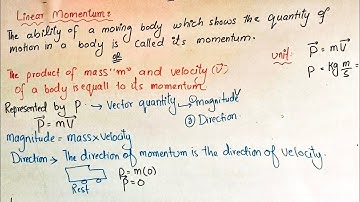 Linear Momentum:
The ability of a moving body which shows the quantity of
motion in a body is called its momentum.
OR
The product of mass "m" and velocity (v⃗)
of a body is equall to its momentum.
Unit:
P⃗ = mV⃗
P = kg m/s =
Represented by P. → Vector quantity → ① magnitude
② Direction
P⃗ = mV⃗
magnitude = mass × velocity
Direction → The direction of momentum is the direction of velocity.
Rest
P = m(0)
P = 0